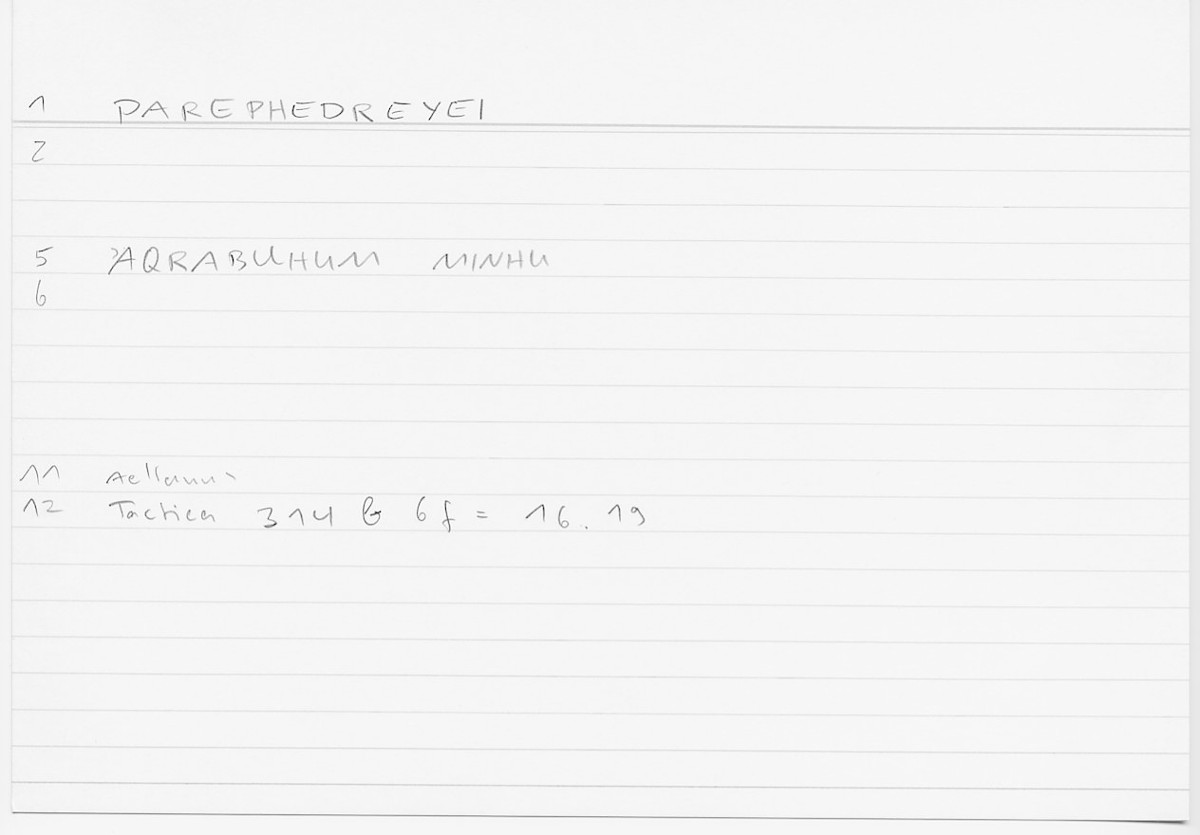 1 PAREPHEDREYEI
2
5 ʾAQRABUHUM MINHU
6
11 Aelianus
12 Tactica 314 b 6 f = 16.19